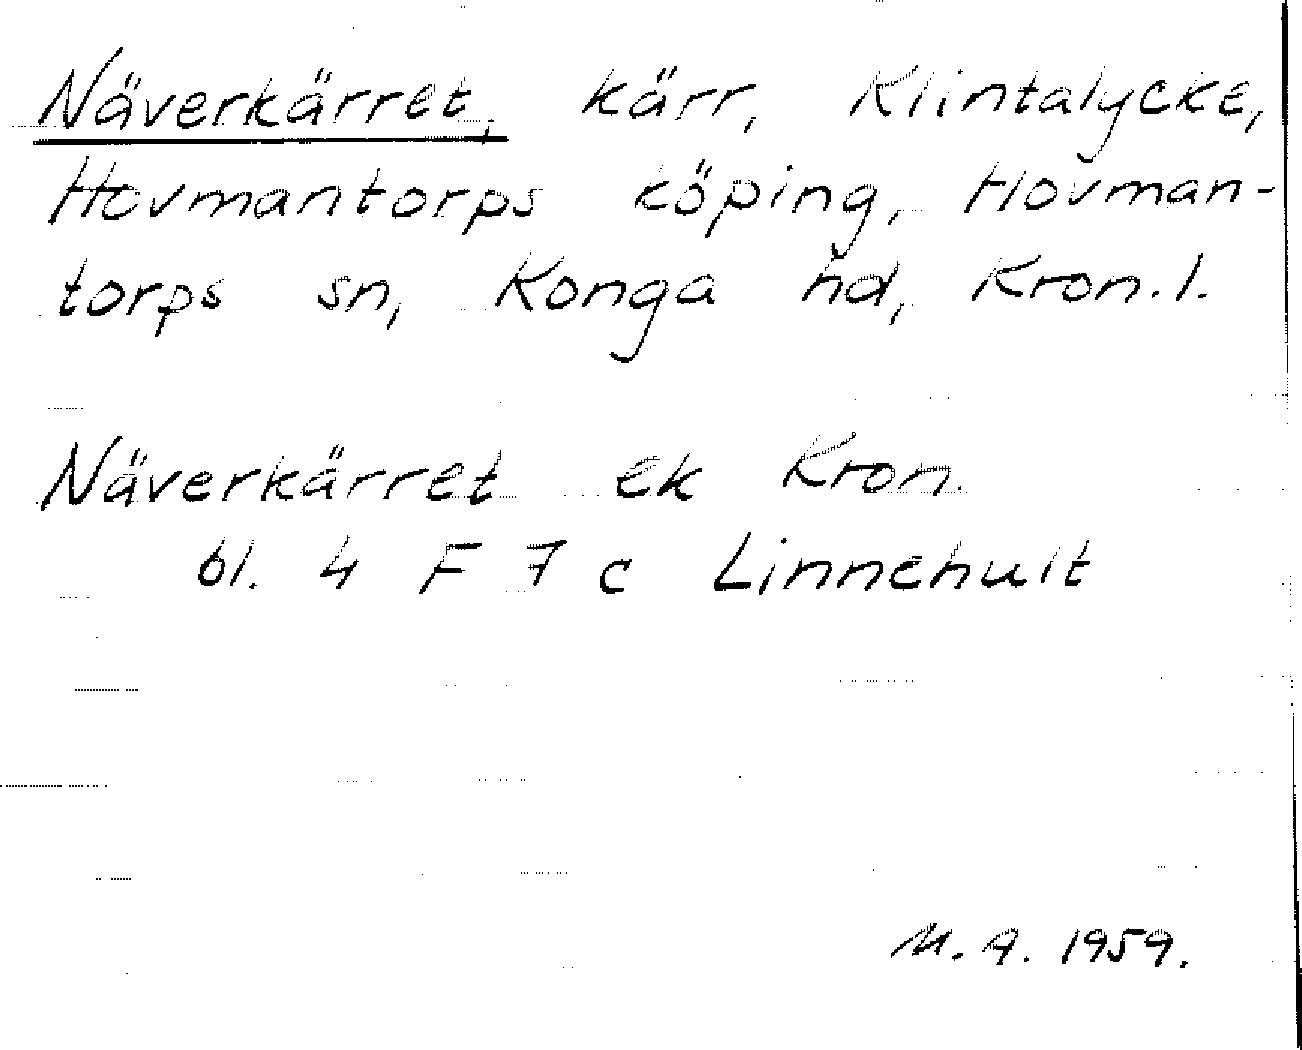 Näverkärret, kärr, Klintalycke,
Hovmantorps köping, Hovman-
torps sn, Konga hd, Kron.l.
Näverkärret ek Kron.
bl. 4 F 7 c Linnehult
M. A. 1959.